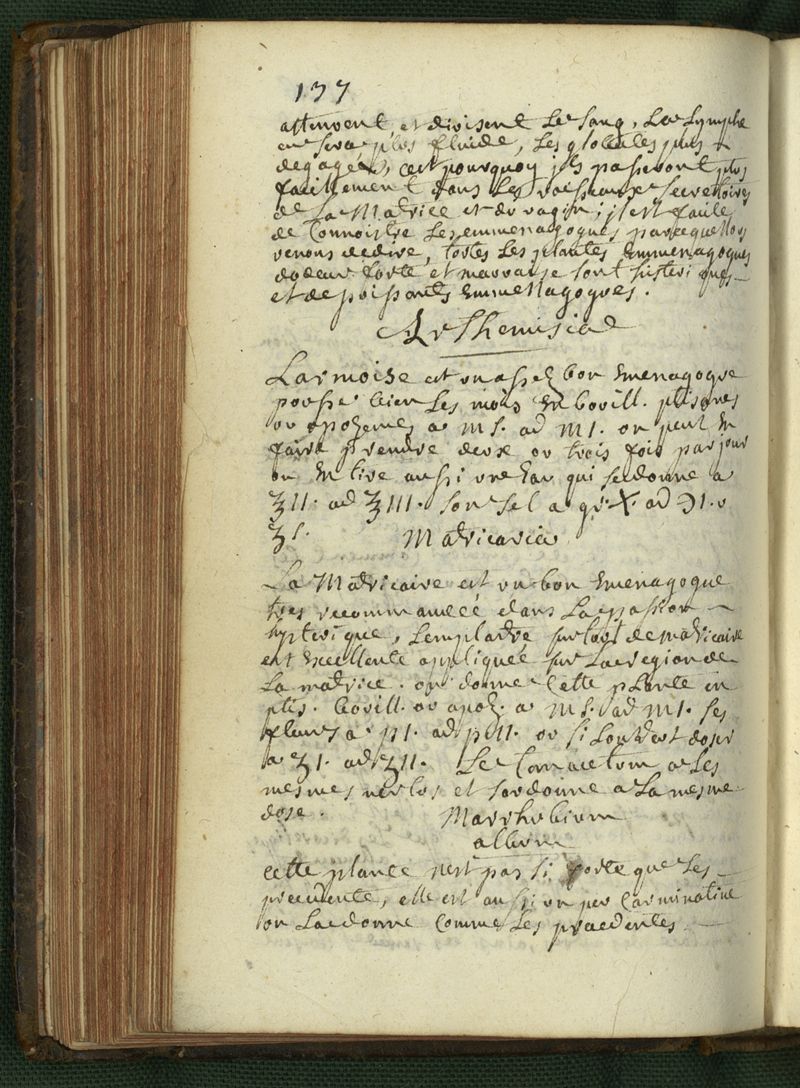 137
attenvent, et divisent Le sang, La Lymphe
en sera plus fluide, Les globules plus
degagées, cest pourquoy jls passeront plus
facillement dans Les vaisseaux secretoires
de La Matrice et du vagin, jl est facile
de Connoistre Les emmenagogues parceque Nous
venons de dire, toutes Les plantes Emmenagogues
dodeur forte et mauvaise sont histeriques
et de puissants Emmenagogues.
Arthemisia
Larmoise est un assez bon Emenagogue
pousse bien Les mois En bovill. ptisanes
ou apozemes a m s. ad m 1. on peut En
faire prendre deux ou trois fois par jour
on En tire aussi une Eau qui se donne a
℥ II. ad ℥ III. son sel a gr. X. ad ℈ 1. v
ʒ s.
Matricaria
La Matricaire est un bon Emenagogue
tres recommandée dans La passion
hysterique, Lemplatre sur tout de matricaire
est Excellente appliquée sur La region de
La matrice. on donne Cette plante in
ptis. bovill. ou apoz. a m s. ad m 1. ses
fleurs a p 1. ad p II. ou
a ʒ 1. ad ʒ II. Le Tanacetum a Les
mesmes vertus et sordonne a La mesme
dose.
Marrhubium
album
Cette plante nest pas si forte que Les
precedente, elle est aussi un peu Carminative
on La donne Comme Les precedentes.